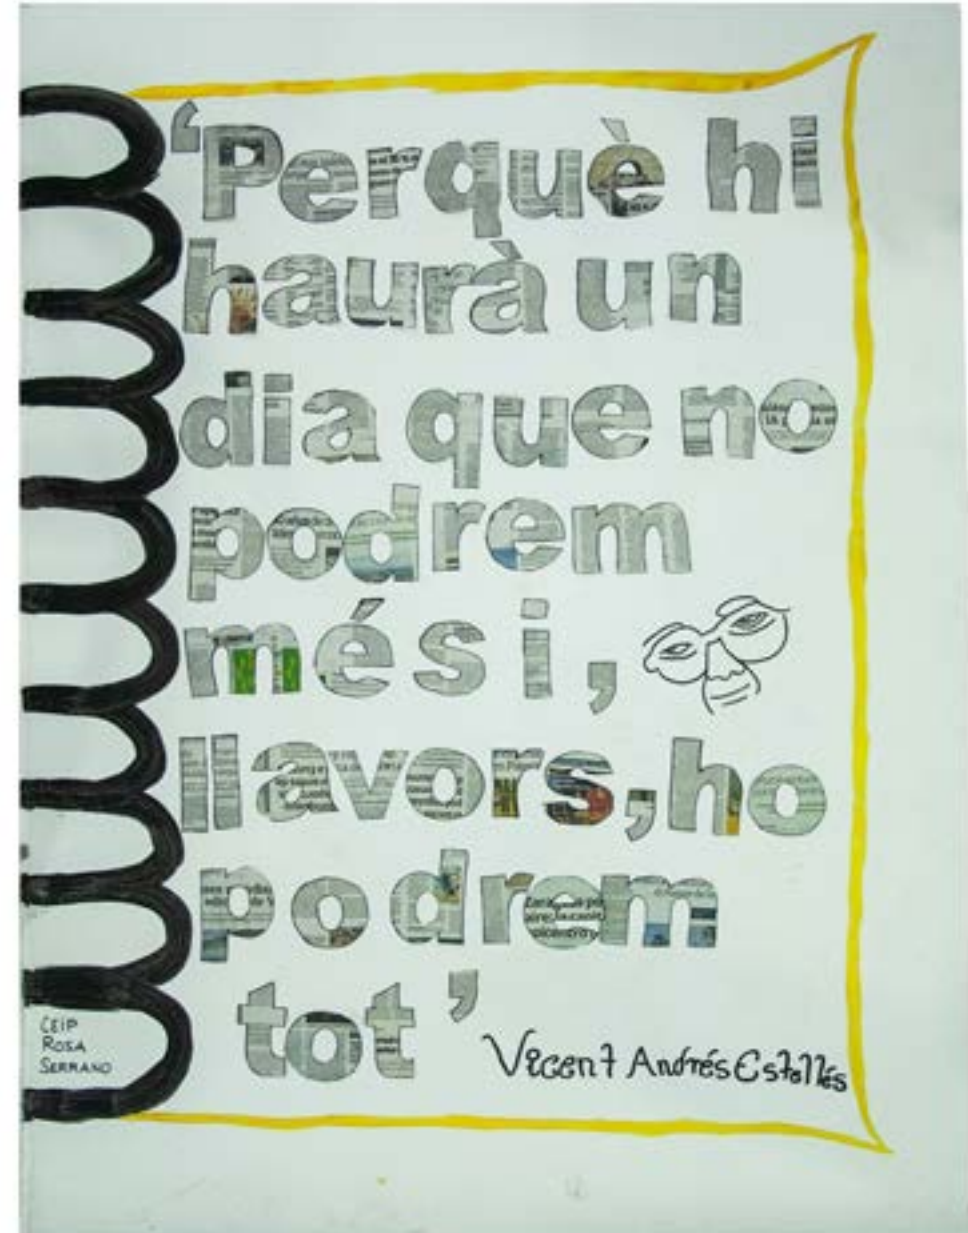 ‘Perquè hi
haurà un
dia que no
podrem
més i,
llavors, ho
podrem
tot’
Vicent Andrés Estellés
CEIP
ROSA
SERRANO